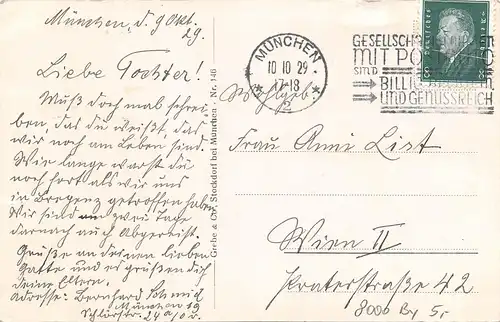 München, d. 9 Okt.
29.
Liebe Tochter!
Muß doch mal schrei-
ben, das du weißt, das
wir noch am Leben sind.
Wie lange warst du
noch fort als wir uns
in Bregenz getroffen haben
Wir sind zwei Tage
darnach auch Abgereist.
Grüße an deinen lieben
Gatte und es grüßen dich
deine Eltern.
Adresse: Bernhard Schmid
München 10
24
Grebe & Cie, Stockdorf bei München - Nr. 146
MÜNCHEN
10 10 29
17-18
GESELLSCH
MIT PO
SIND
BILLIG
UND GENUSSREICH
Deutsches
Wohlgeb.
Frau Anni List
Wien II
Praterstraße 42
8000 By 5,-